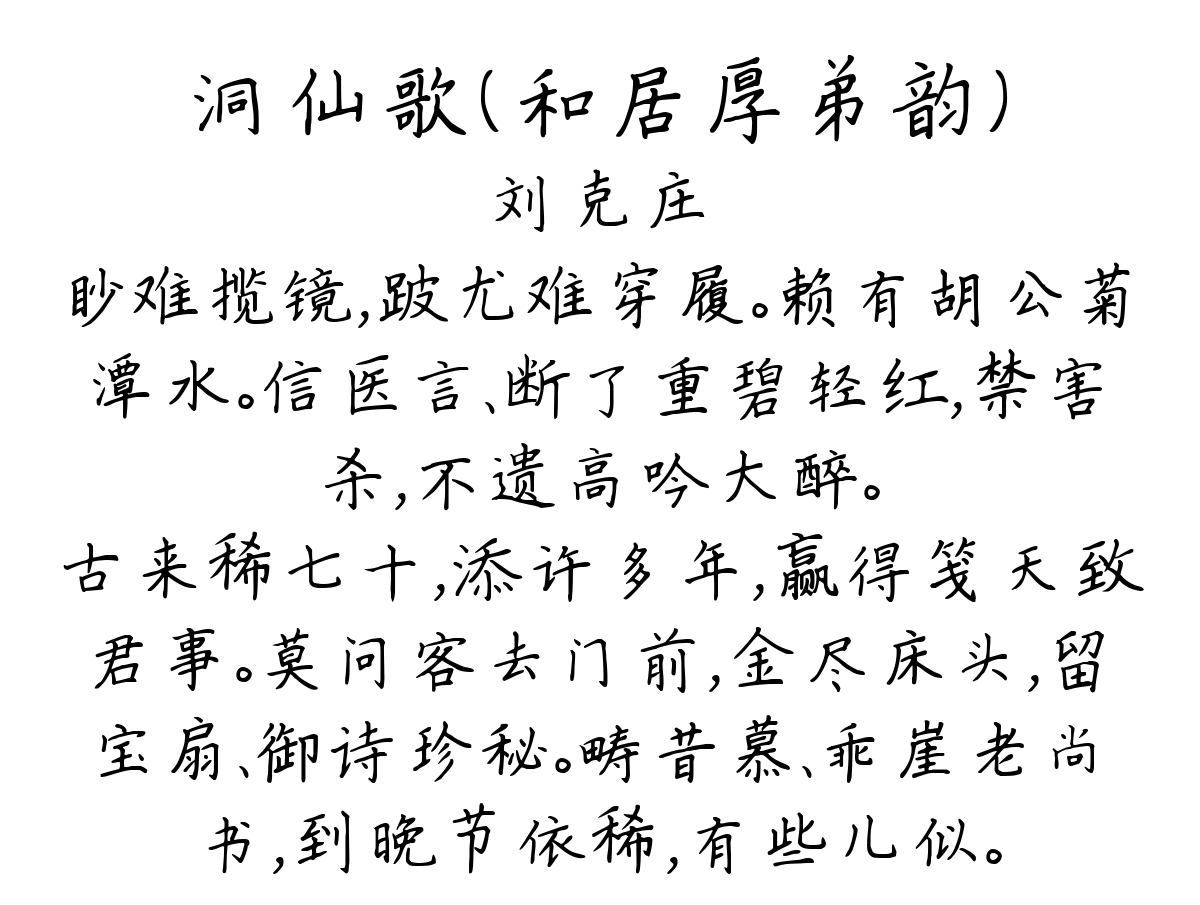 洞仙歌(和居厚弟韵)
刘克庄
眇难揽镜,跛尤难穿履。赖有胡公菊
潭水。信医言、断了重碧轻红,禁害
杀,不遗高吟大醉。
古来稀七十,添许多年,赢得笺天致
君事。莫问客去门前,金尽床头,留
宝扇、御诗珍秘。畴昔慕、乖崖老尚
书,到晚节依稀,有些儿似。